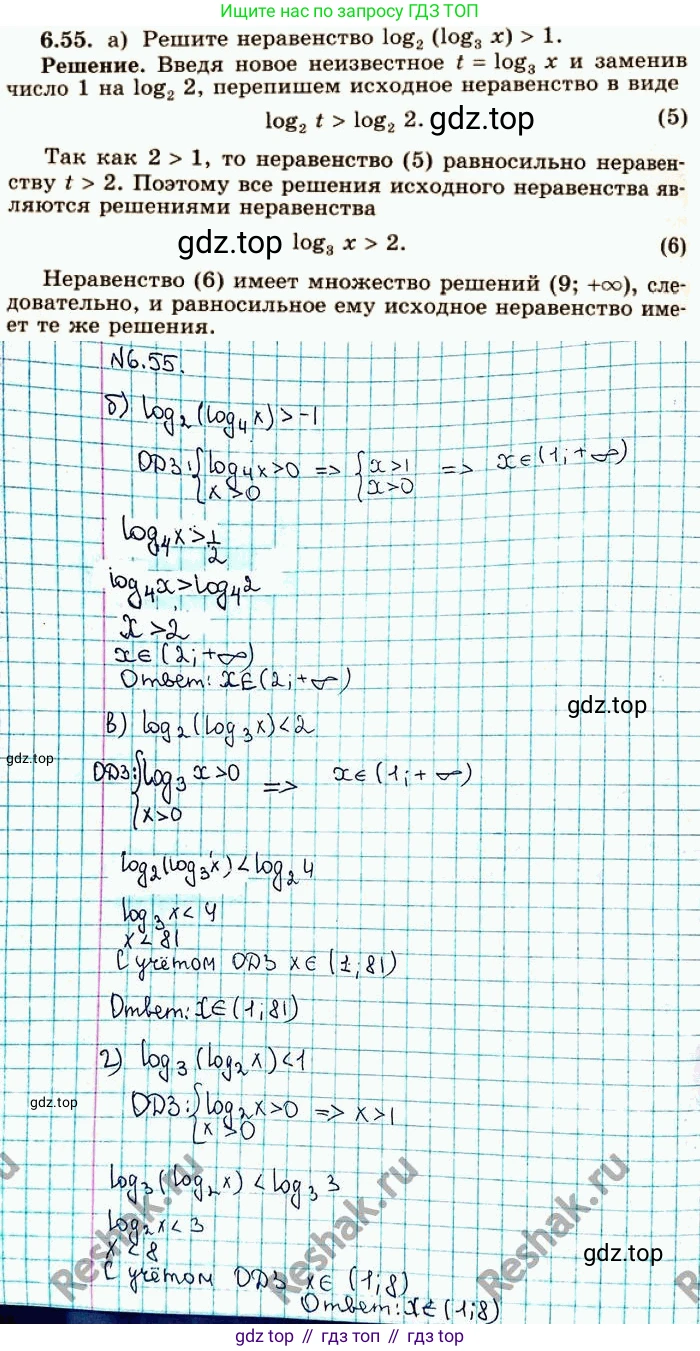 Появились вопросы?
Просто сделай запрос по слову ГДЗ ТОП
6.55. а) Решите неравенство log₂ (log₃ x) > 1.
Решение. Введя новое неизвестное t = log₃ x и заменив
число 1 на log₂ 2, перепишем исходное неравенство в виде
log₂ t > log₂ 2. gdz.top (5)
Так как 2 > 1, то неравенство (5) равносильно неравен-
ству t > 2. Поэтому все решения исходного неравенства яв-
ляются решениями неравенства
gdz.top log₃ x > 2. (6)
Неравенство (6) имеет множество решений (9; +∞), сле-
довательно, и равносильное ему исходное неравенство име-
ет те же решения.
N6.55.
б) log₂(log₄x)>-1
ОДЗ: {log₄x>0 => {x>1 => x∈(1;+∞)
x>0 x>0
log₄x>1/2
log₄x>log₄2
x>2
x∈(2;+∞)
Ответ: x∈(2;+∞)
gdz.top
в) log₂(log₃x)<2
gdz.top
ОДЗ: {log₃x>0 => x∈(1;+∞)
x>0
log₂(log₃x)<log₂4
log₃x<4
x<81
С учётом ОДЗ x∈(1;81)
Ответ: x∈(1;81)
г) log₃(log₂x)<1
gdz.top
ОДЗ: {log₂x>0 => x>1
x>0
log₃(log₂x)<log₃3
log₂x<3
x<8
gdz.top
С учётом ОДЗ x∈(1;8)
Ответ: x∈(1;8)
Reshak.ru
Reshak.ru
Reshak.ru
gdz.top // гдз топ // gdz.top